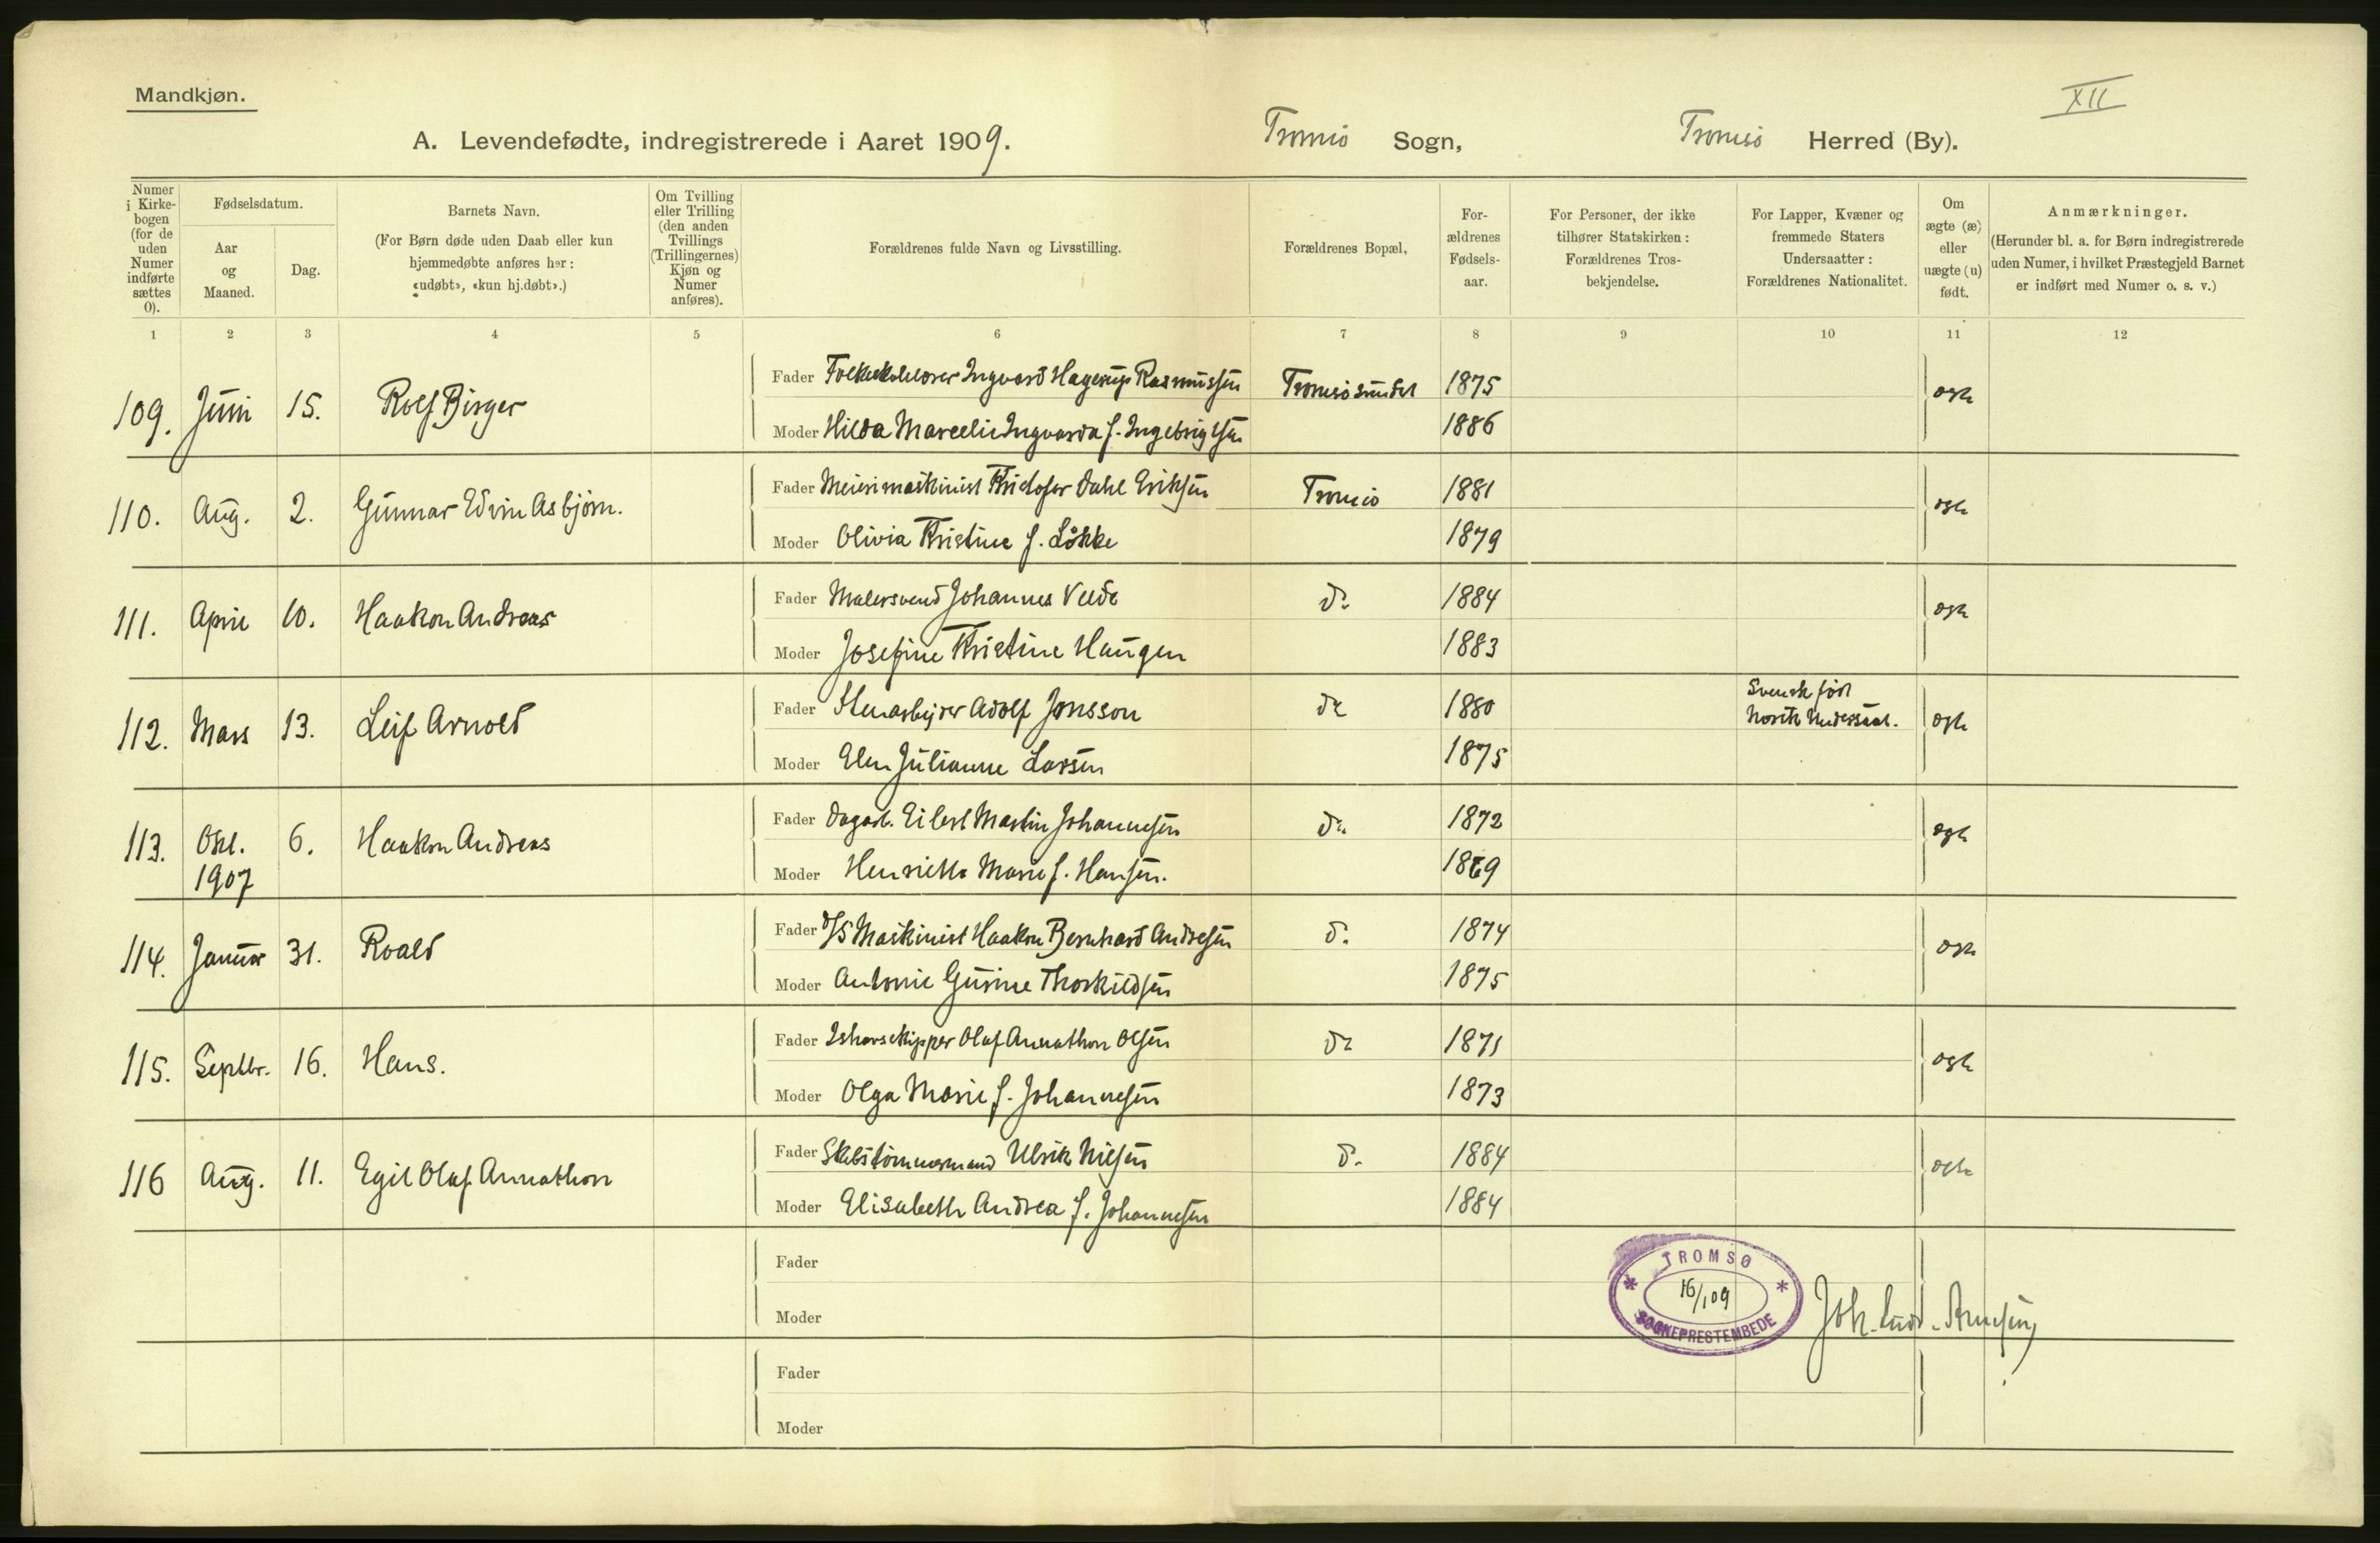 Mandkjøn.
XII
A. Levendefødte, indregistrerede i Aaret 1909. Tromsø Sogn, Tromsø Herred (By).
Numer i Kirkebogen (for de uden Numer indførte sættes 0).
Fødselsdatum.
Aar og Maaned.
Dag.
Barnets Navn.
(For Børn døde uden Daab eller kun hjemmedøbte anføres her: «udøbt», «kun hj.døbt».)
Om Tvilling eller Trilling (den anden Tvillings (Trillingernes) Kjøn og Numer anføres).
Forældrenes fulde Navn og Livsstilling.
Forældrenes Bopæl,
Forældrenes Fødselsaar.
For Personer, der ikke tilhører Statskirken: Forældrenes Trosbekjendelse.
For Lapper, Kvæner og fremmede Staters Undersaatter: Forældrenes Nationalitet.
Om ægte (æ) eller uægte (u) født.
Anmærkninger.
(Herunder bl. a. for Børn indregistrerede uden Numer, i hvilket Præstegjeld Barnet er indført med Numer o. s. v.)
1 2 3 4 5 6 7 8 9 10 11 12
109. Juni 15. Rolf Birger Fader Folkeskolelærer Ingvard Hagerup Rasmussen Tromsøsundet 1875 ægte
Moder Hilda Marcelie Ingvarda f. Ingebrigtsen 1886
110. Aug. 2. Gunnar Edvin Asbjørn. Fader Meierimaskinist Kristofer Dahl Eriksen Tromsø 1881 ægte
Moder Olivia Kristine f. Løkke 1879
111. April 10. Haakon Andreas Fader Malersvend Johannes Veede do 1884 ægte
Moder Josefine Kristine Haugen 1883
112. Mars 13. Leif Arnold Fader Stenarbeider Adolf Jonsson do 1880 Svensk født norsk Undersaat. ægte
Moder Elen Julianne Larsen 1875
113. Okt. 1907 6. Haakon Andreas Fader Dagarb. Eilert Martin Johannesen do 1872 ægte
Moder Henriette Marie f. Hansen. 1869
114. Januar 31. Roald Fader D/S Maskinist Haakon Bernhard Andresen do 1874 ægte
Moder Antonie Gurine Thorkildsen 1875
115. Septbr. 16. Hans. Fader Ishavsskipper Olaf Annathon Olsen do 1871 ægte
Moder Olga Marie f. Johannesen 1873
116 Aug. 11. Egil Olaf Annathon Fader Skibstømmermand Ulrik Nilsen do 1884 ægte
Moder Elisabeth Andrea f. Johannesen 1884
Fader
Moder
TROMSØ
16/1 09
SOGNEPRESTEMBEDE
Fader
Moder